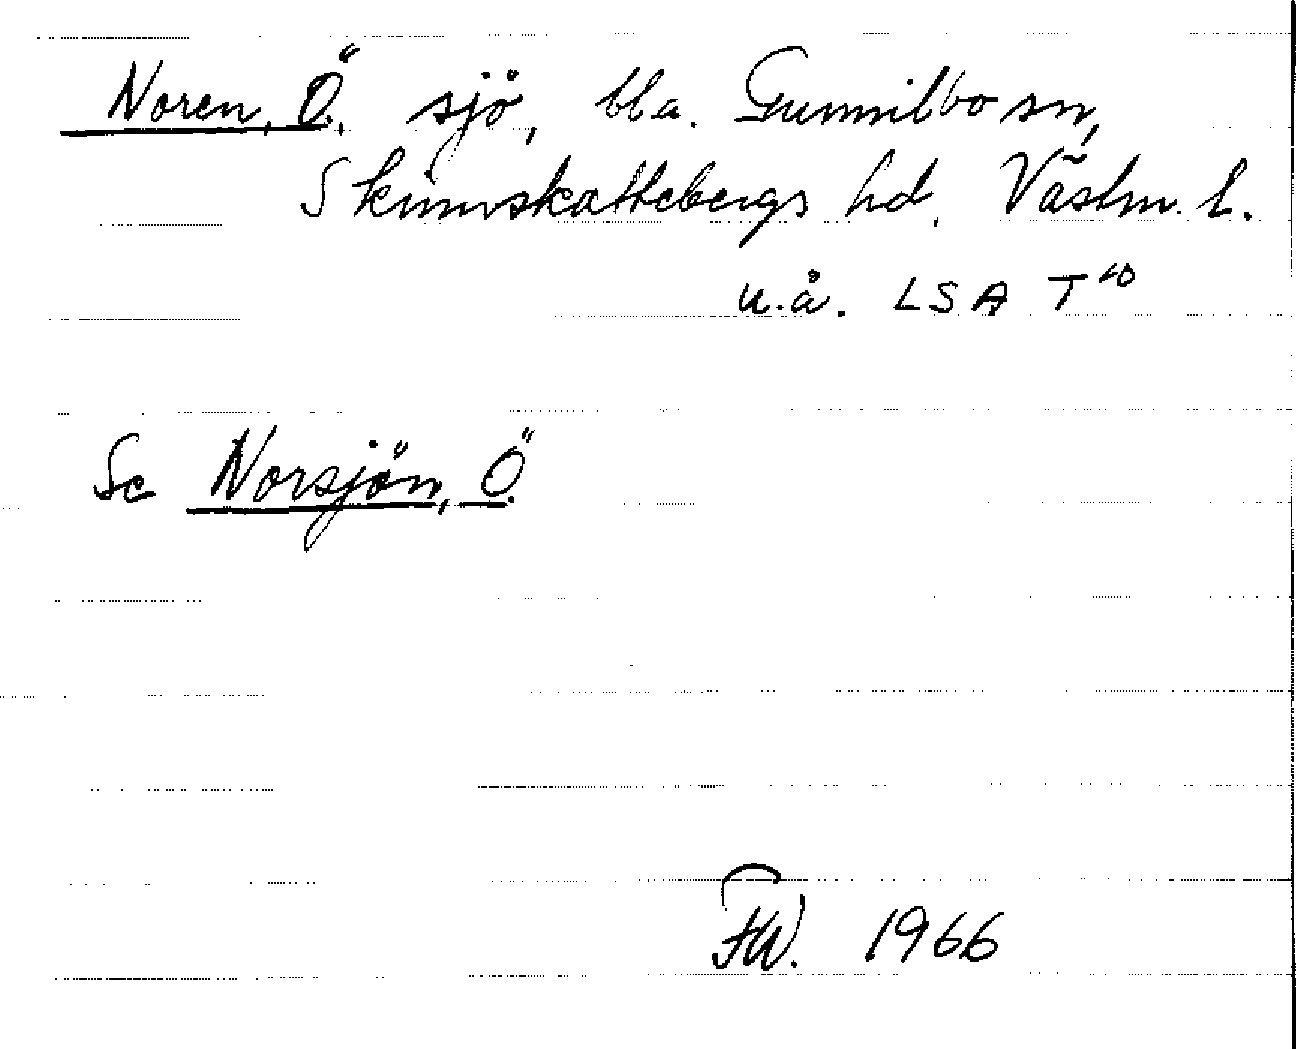 Noren, Ö. sjö, bl.a. Gunnilbo sn,
Skinnskattebergs hd. Västm. l.
u.å. LSA T 10
Se Norsjön, Ö.
FW. 1966